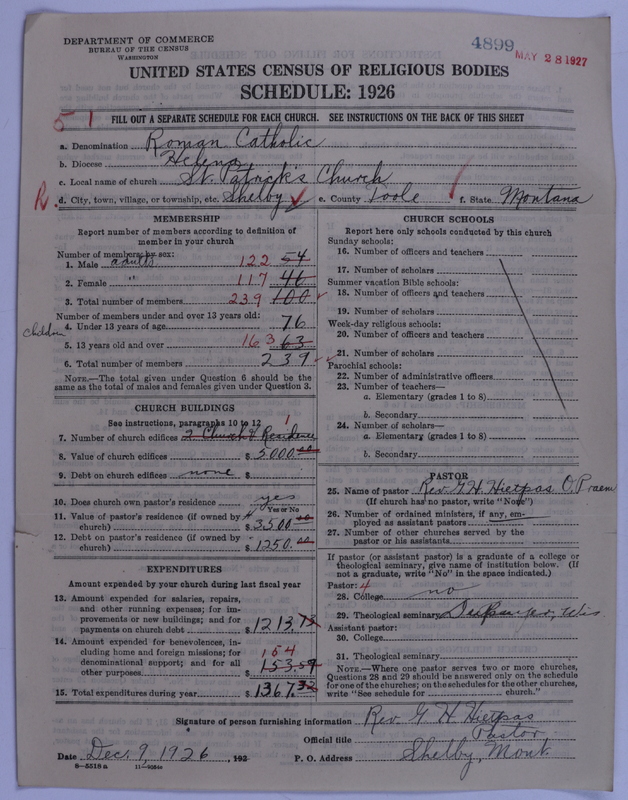 DEPARTMENT OF COMMERCE
BUREAU OF THE CENSUS
WASHINGTON
4899
MAY 28 1927
UNITED STATES CENSUS OF RELIGIOUS BODIES
SCHEDULE: 1926
51
FILL OUT A SEPARATE SCHEDULE FOR EACH CHURCH. SEE INSTRUCTIONS ON THE BACK OF THIS SHEET
a. Denomination Roman Catholic
b. Diocese Helena
c. Local name of church St. Patrick's Church
R d. City, town, village, or township, etc. Shelby e. County Toole f. State Montana
MEMBERSHIP
Report number of members according to definition of
member in your church
Number of members by sex:
1. Male adults 122 54
2. Female " 117 46
3. Total number of members 239 100
Number of members under and over 13 years old:
children 4. Under 13 years of age 76
5. 13 years old and over 163 63
6. Total number of members 239
NOTE.—The total given under Question 6 should be the
same as the total of males and females given under Question 3.
CHURCH BUILDINGS
See instructions, paragraphs 10 to 12
7. Number of church edifices 1 2 Church & Residence
8. Value of church edifices $ 5000.00
9. Debt on church edifices none $
10. Does church own pastor's residence yes
Yes or No
11. Value of pastor's residence (if owned by
church) $ 3500.00
12. Debt on pastor's residence (if owned by
church) $ 1250.00
EXPENDITURES
Amount expended by your church during last fiscal year
13. Amount expended for salaries, repairs,
and other running expenses; for im-
provements or new buildings; and for
payments on church debt $ 1213.73
14. Amount expended for benevolences, in-
cluding home and foreign missions; for
denominational support; and for all
other purposes $ 154 153.59
15. Total expenditures during year $ 1367.32
CHURCH SCHOOLS
Report here only schools conducted by this church
Sunday schools:
16. Number of officers and teachers
17. Number of scholars
Summer vacation Bible schools:
18. Number of officers and teachers
19. Number of scholars
Week-day religious schools:
20. Number of officers and teachers
21. Number of scholars
Parochial schools:
22. Number of administrative officers
23. Number of teachers—
a. Elementary (grades 1 to 8)
b. Secondary
24. Number of scholars—
a. Elementary (grades 1 to 8)
b. Secondary
PASTOR
25. Name of pastor Rev. G. H. Hietpas O. Praem
(If church has no pastor, write "None")
26. Number of ordained ministers, if any, em-
ployed as assistant pastors
27. Number of other churches served by the
pastor or his assistants
If pastor (or assistant pastor) is a graduate of a college or
theological seminary, give name of institution below. (If
not a graduate, write "No" in the space indicated.)
Pastor:
28. College no
29. Theological seminary Wis
Assistant pastor:
30. College
31. Theological seminary
NOTE.—Where one pastor serves two or more churches,
Questions 28 and 29 should be answered only on the schedule
for one of the churches; on the schedules for the other churches,
write "See schedule for church."
Signature of person furnishing information Rev. G H Hietpas
Official title Pastor
Date Dec. 9, 1926, 192 P. O. Address Shelby, Mont.
8—5518 a 11—9054